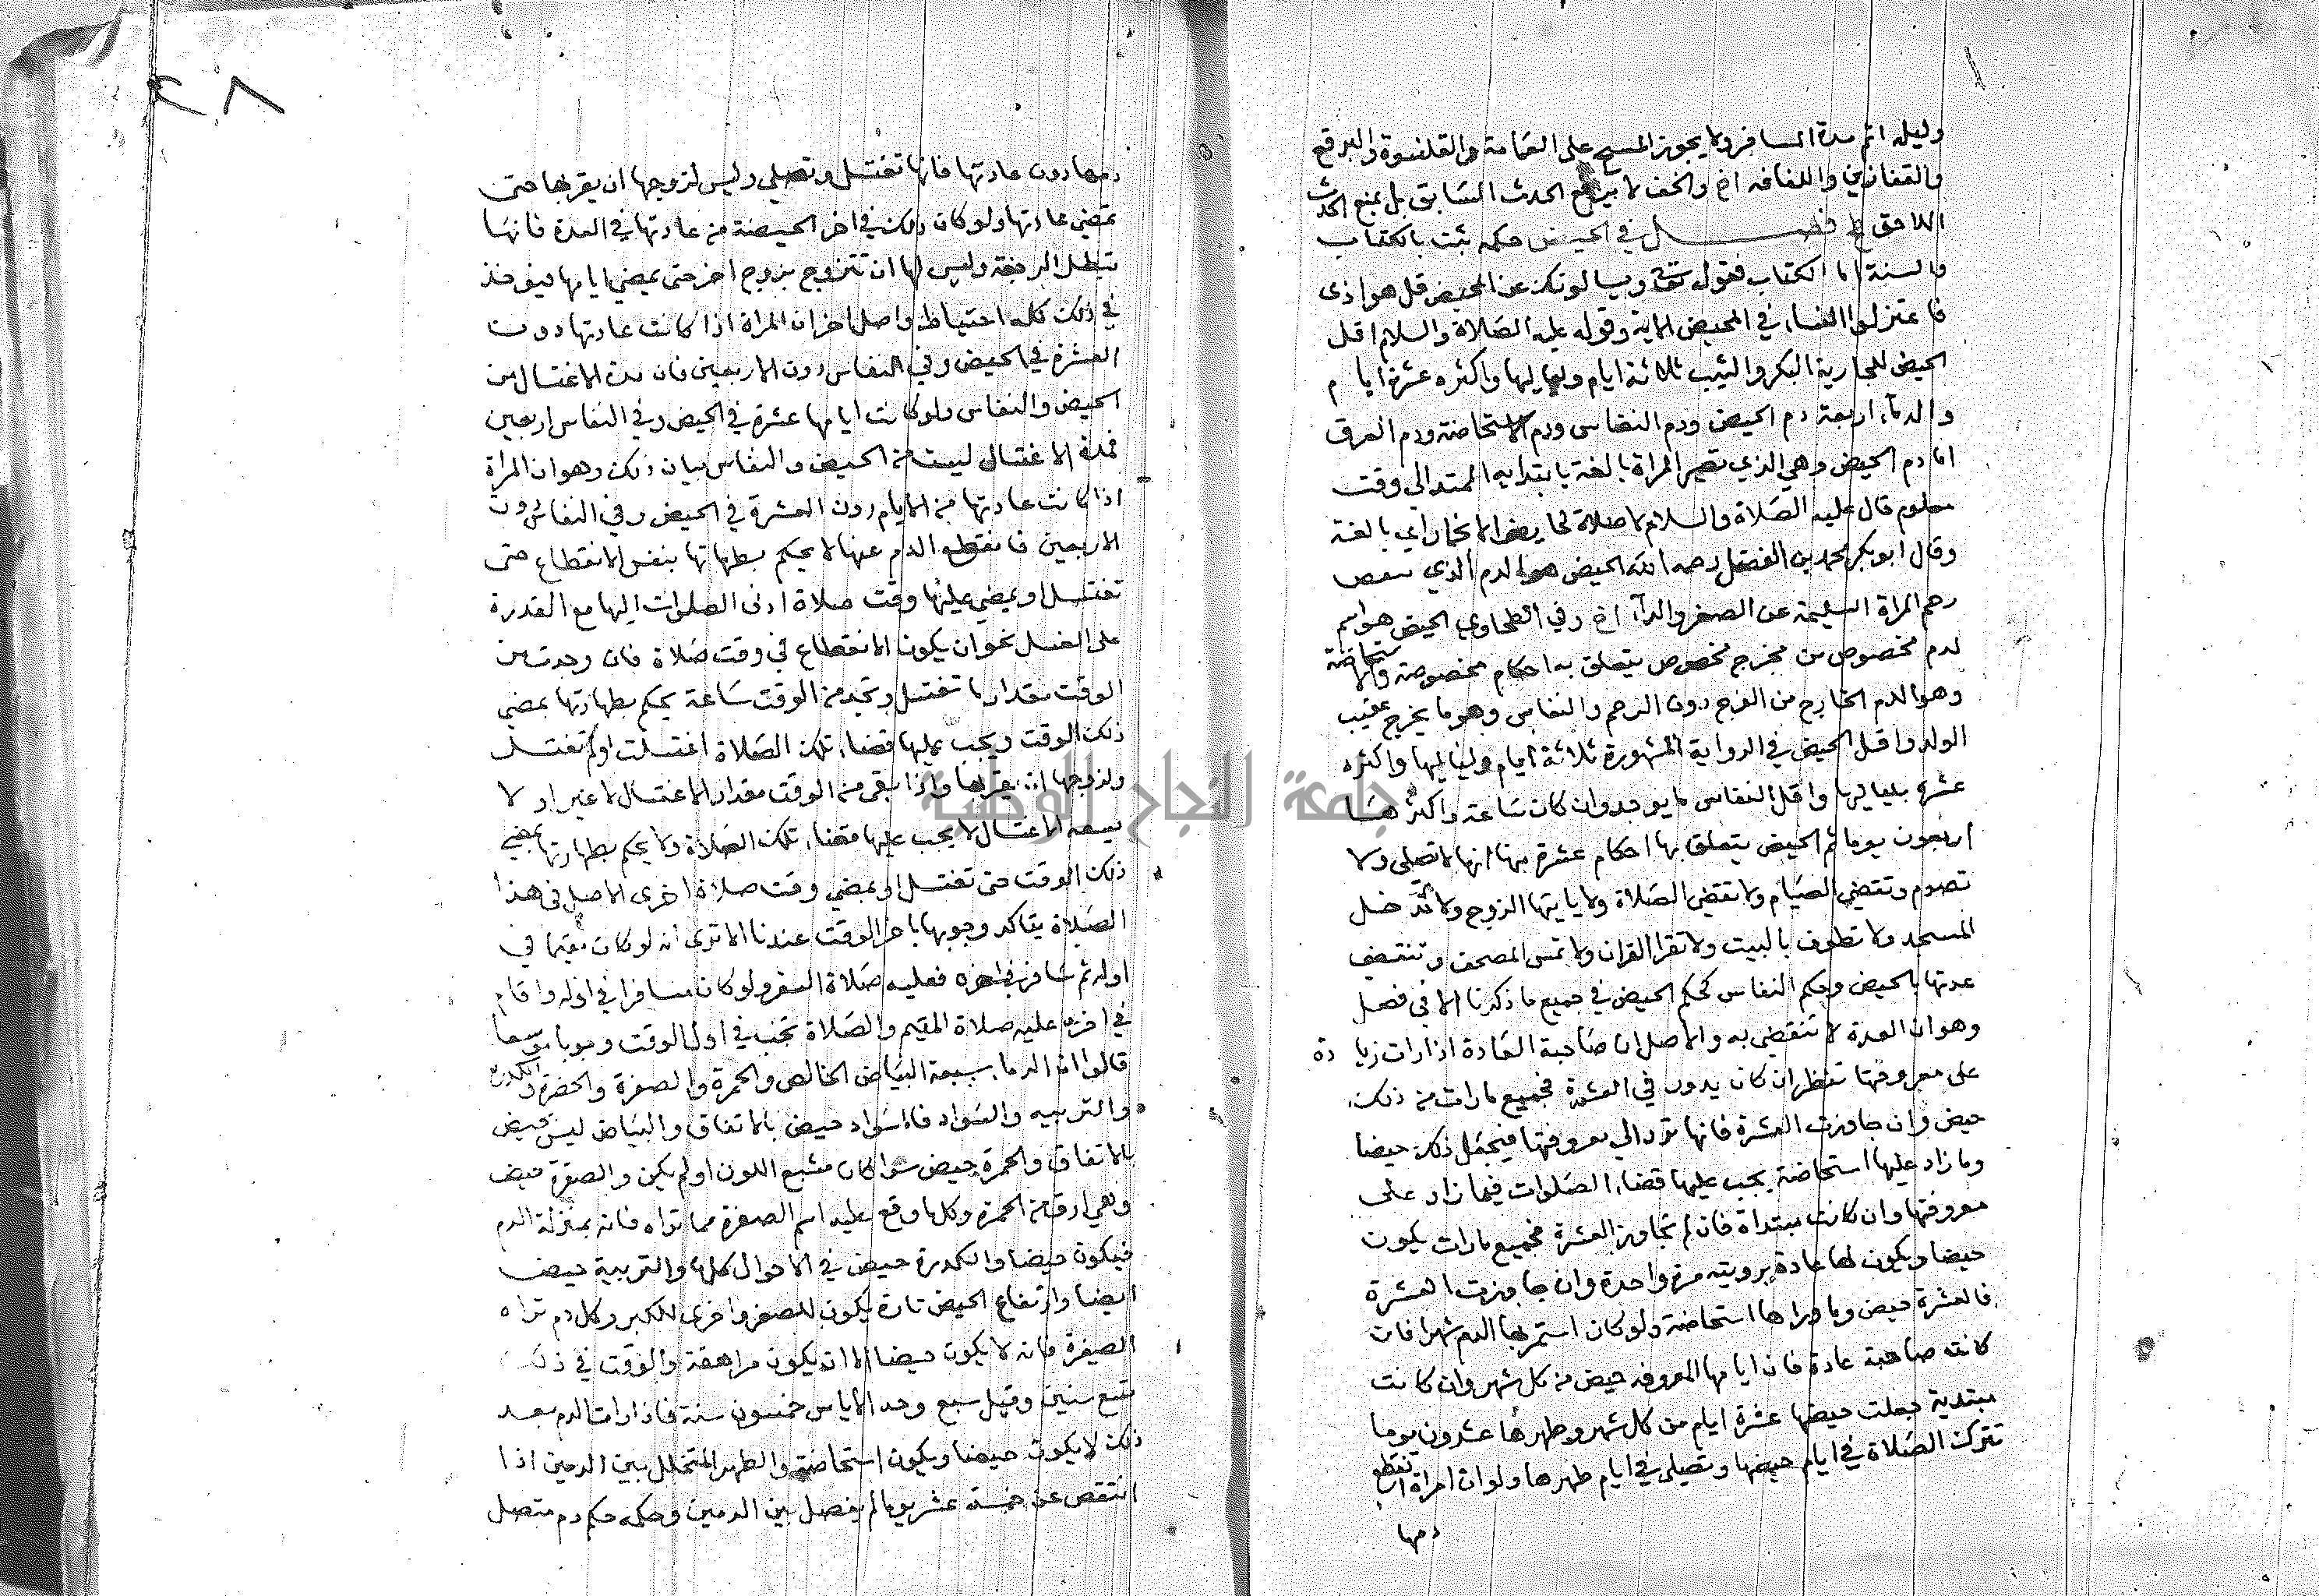 وليله اتم مدة المسافر ولا يجوز المسح على العمامة والقلنسوة والبرقع
والقفازين واللفافه اخ والخف لا يرافع الحدث السابق بل يمنع الحدث
اللاحق فصل في الحيض حكمه ثبت بالكتاب
والسنة اما الكتاب فقوله تعا ويسالونك عن المحيض قل هو اذى
فاعتزلوا النساء في المحيض الاية وقوله عليه الصلاة والسلام اقل
الحيض للجارية البكر والثيب ثلاثة ايام ولياليها واكثره عشرة ايام
والدماء اربعة دم الحيض ودم النفاس ودم الاستحاضة ودم العرق
اما دم الحيض وهي الذي تصير المراة بالغة بابتدايه الممتد الي وقت
معلوم قال عليه الصلاة والسلام لا صلاة لحايض الا بخمار اي بالغة
وقال ابو بكر محمد بن الفضل رحمه الله الحيض هو الدم الذي
رحم المراة السليمة عن الصغر والدآ اخ وفي الطحاوي الحيض هو اسم
لدم مخصوص من مخرج مخصوص يتعلق به احكام مخصوصة والاستحاضة
وهو الدم الخارج من الفرج دون الرحم والنفاس وهو ما يخرج عقيب
الولد واقل الحيض في الرواية المشهورة ثلاثة ايام ولياليها واكثره
عشره بلياليها واقل النفاس ما يوجد وان كان ساعة واكثرها
اربعون يوما ثم الحيض يتعلق بها احكام عشرة منها انها لا تصلى ولا
تصوم وتقضي الصيام ولا تقضي الصلاة ولا ياتيها الزوج ولا تدخل
المسجد ولا تطوف بالبيت ولا تقرا القران ولا تمس المصحف وتنقضي
عدتها بالحيض وحكم النفاس كحكم الحيض في جميع ما ذكرنا الا في فصل
وهو ان العدة لا تنقضي به والاصل ان صاحبة العادة اذا رات زيادة
على معروفتها تنظر ان كان يدور في العشرة فجميع ما رات من ذلك
حيض وان جاوزت العشرة فانها ترد الي معروفتها فيجعل ذلك حيضا
وما زاد عليها استحاضة يجب عليها قضاء الصلوات فيما زاد على
معروفتها وان كانت مبتداة فان لم تجاوز العشرة فجميع ما رات يكون
حيضا ويكون لها عادة برويته مرة واحدة وان جاوزت العشرة
فالعشرة حيض وما وراها استحاضة ولو كان استمر بها الدم شهرا فان
كانت صاحبة عادة فان ايامها المعروفه حيض من كل شهر وان كانت
مبتدية جعلت حيضها عشرة ايام من كل شهر وطهرها عشرون يوما
تترك الصلاة في ايام حيضها وتصلي في ايام طهرها ولو ان امراة انقطع
دمها
٢٨
دمها دون عادتها فانها تغتسل وتصلي وليس لزوجها ان يقربها حتى
تمضي عادتها ولو كان ذلك في اخر الحيضة من عادتها في العدة فانها
تبطل الرجعة وليس لها ان تتزوج بزوج اخر حتى يمضي ايامها فيوخذ
في ذلك كله احتياط واصل اخر ان المراة اذا كانت عادتها دون
العشرة في الحيض وفي النفاس دون الاربعين فان مدة الاغتسال من
الحيض والنفاس ولو كانت ايامها عشرة في الحيض وفي النفاس اربعين
فمدة الاغتسال ليست من الحيض والنفاس بيان ذلك وهو ان المراة
اذا كانت عادتها من الايام دون العشرة في الحيض وفي النفاس دون
الاربعين فانقطع الدم عنها لا يحكم بطهارتها بنفس الانقطاع حتى
تغتسل او يمضي عليها وقت صلاة ادنى الصلوات اليها مع القدرة
على الغسل نحو ان يكون الانقطاع في وقت صلاة فان وجدت من
الوقت مقدار ما تغتسل وتجد من الوقت ساعة يحكم بطهارتها بمضي
ذلك الوقت ويجب عليها قضاء تلك الصلاة اغتسلت او لم تغتسل
ولزوجها ان يقربها واذا بقى من الوقت مقدار الاغتسال لا غير او لا
يسعه الاغتسال لا يجب عليها قضاء تلك الصلاة ولا يحكم بطهارتها بمضي
ذلك الوقت حتى تغتسل او يمضي وقت صلاة اخرى الاصل في هذا
الصلاة يتاكد وجوبها باخر الوقت عندنا الا ترى انه لو كان مقيما في
اوله ثم سافر في اخره فعليه صلاة السفر ولو كان مسافرا في اوله واقام
في اخره عليه صلاة المقيم والصلاة تجب في اول الوقت وجوبا موسعا
قالوا الدماء سبعة البياض الخالص والحمرة والصفرة والخضرة والكدرة
والتربيه والسواد فالسواد حيض بالاتفاق والبياض ليس بحيض
بالاتفاق والحمرة حيض سوا كان مشبع اللون او لم يكن والصفرة حيض
وهي ارق من الحمرة وكلما وقع عليه اسم الصفرة مما تراه فانه بمنزلة الدم
فيكون حيضا والكدرة حيض في الاحوال كلها والتربية حيض
ايضا وارتفاع الحيض تارة يكون للصغر واخرى للكبر وكل دم تراه
الصغيرة فانه لا يكون حيضا الا ان يكون مراهقة والوقت في ذلك
تسع سنين وقيل سبع وحد الاياس خمسون سنة فاذا رات الدم بعد
ذلك لا يكون حيضا ويكون استحاضة والطهر المتخلل بين الدمين اذا
انتقص عن خمسة عشر يوما لم يفصل بين الدمين وحكمه حكم دم متصل
جامعة النجاح الوطنية